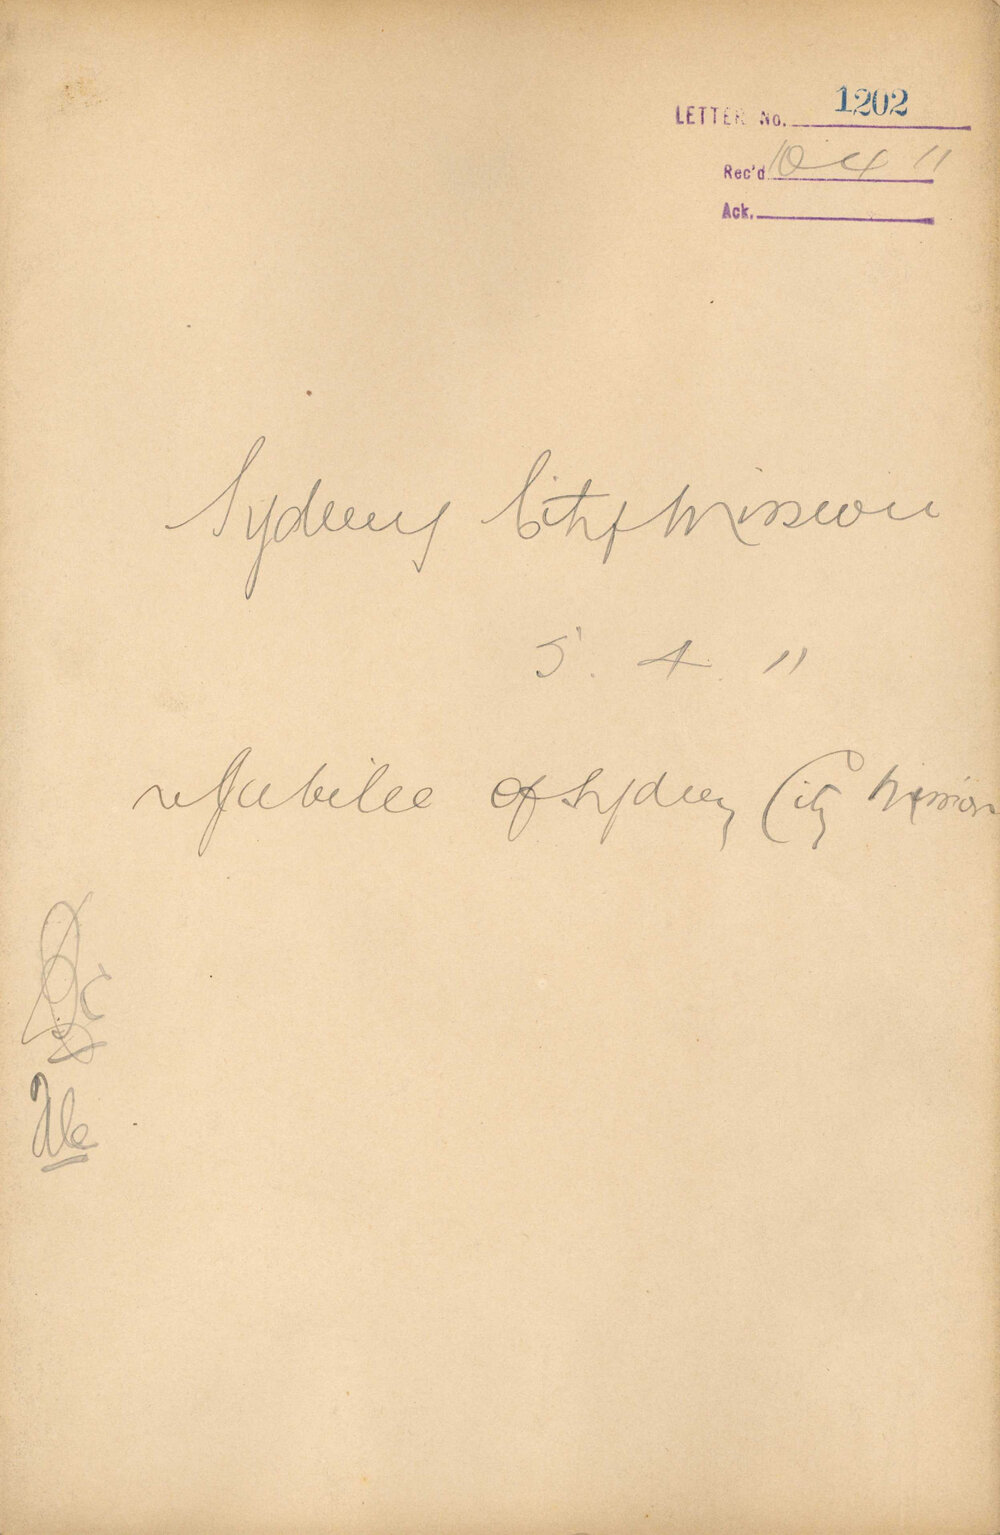 LETTER No. 1202
Rec'd 10 4 11
Ack.
Sydney City Mission
5. 4. 11
re Jubilee of Sydney City Mission